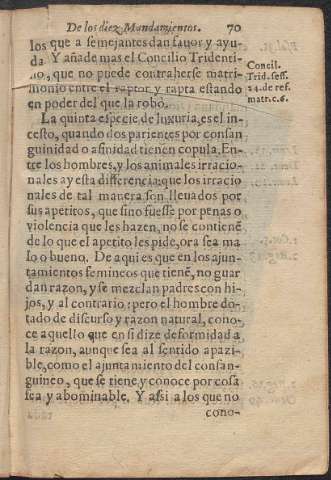 De los diez Mandamientos. 70
los que a semejantes dan fauor y ayu-
da Y añade mas el Concilio Tridenti-
no, que no puede contraherse matri-
monio entre el raptor y rapta estando
en poder del que la robò.
Concil.
Trid. sess.
24. de ref.
matr. c. 6.
La quinta especie de luxuria, es el in-
cesto, quando dos parientes por consan
guinidad o afinidad tienen copula. En-
tre los hombres, y los animales irracio-
nales ay esta differencia: que los irracio
nales de tal manera son lleuados por
sus apetitos, que sino fuesse por penas o
violencia que les hazen, no se contienē
de lo que el apetito les pide, ora sea ma
lo o bueno. De aqui es que en los ajun-
tamientos femineos que tienē, no guar
dan razon, y se mezclan padres con hi-
jos, y al contrario: pero el hombre do-
tado de discurso y razon natural, cono-
ce aquello que en si dize deformidad a
la razon, aunque sea al sentido apazi-
ble, como el ajuntamiento del consan-
guineo, que se tiene y conoce por cosa
fea y abominable. Y assi a los que no
cono-